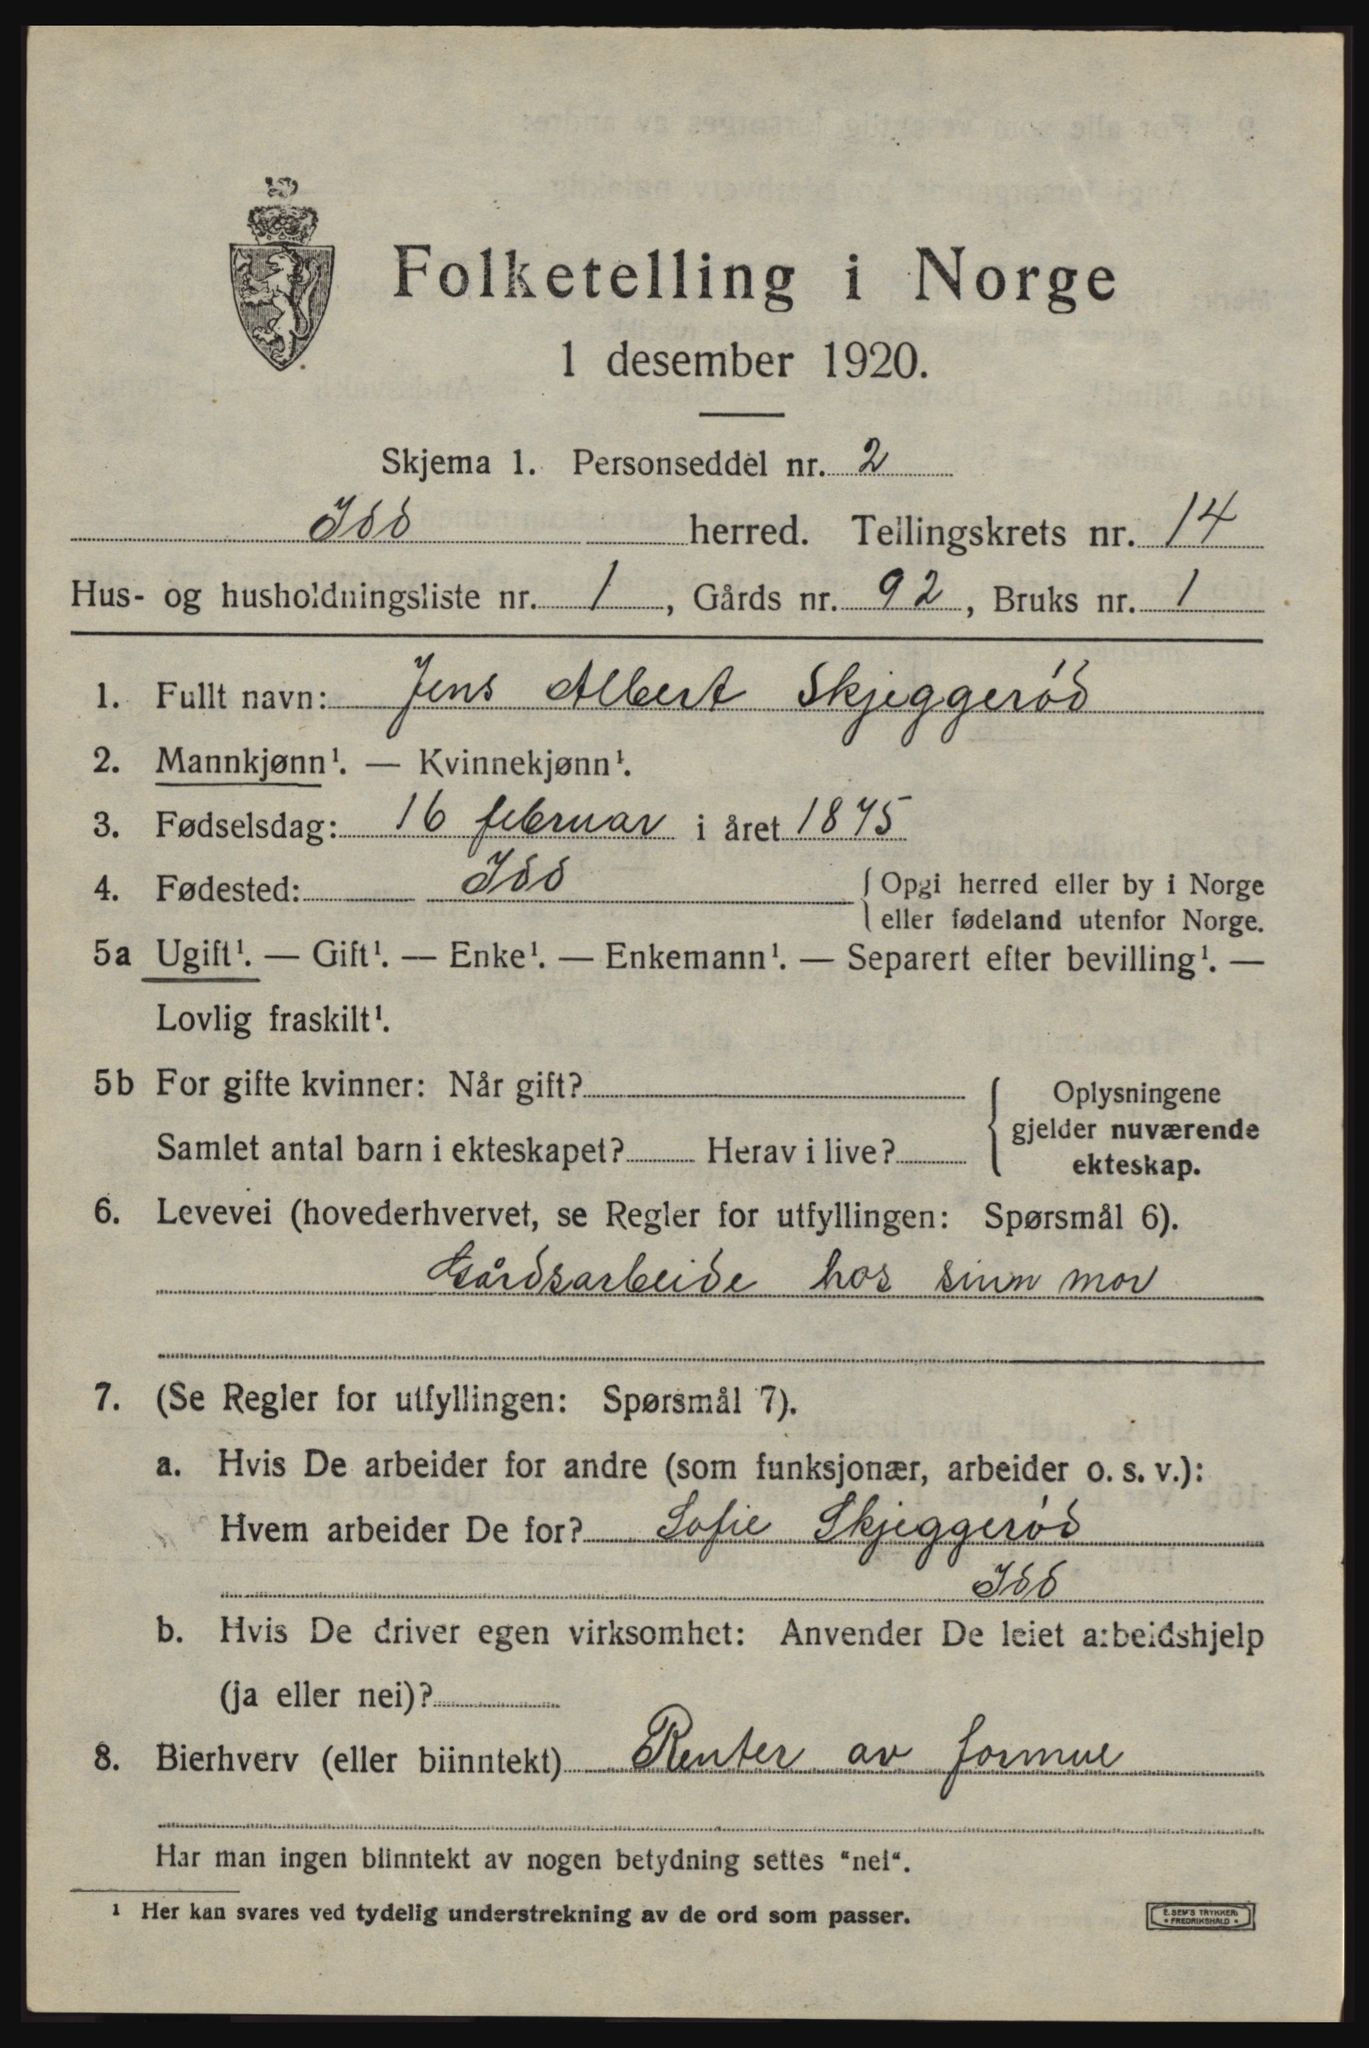 Folketelling i Norge
1 desember 1920.
Skjema 1. Personseddel nr. 2
Idd herred. Tellingskrets nr. 14
Hus- og husholdningsliste nr. 1, Gårds nr. 92, Bruks nr. 1
1. Fullt navn: Jens Albert Skjeggerød
2. Mannkjønn¹. — Kvinnekjønn¹.
3. Fødselsdag: 16 februar i året 1875
4. Fødested: Idd {Opgi herred eller by i Norge
eller fødeland utenfor Norge.
5a Ugift¹. — Gift¹. — Enke¹. — Enkemann¹. — Separert efter bevilling¹. —
Lovlig fraskilt¹.
5b For gifte kvinner: Når gift? { Oplysningene
gjelder nuværende
Samlet antal barn i ekteskapet? Herav i live? ekteskap.
6. Levevei (hovederhvervet, se Regler for utfyllingen: Spørsmål 6).
Gårdsarbeide hos sinn mor
7. (Se Regler for utfyllingen: Spørsmål 7).
a. Hvis De arbeider for andre (som funksjonær, arbeider o. s. v.):
Hvem arbeider De for? Sofie Skjeggerød
Idd
b. Hvis De driver egen virksomhet: Anvender De leiet arbeidshjelp
(ja eller nei)?
8. Bierhverv (eller biinntekt) Renter av formue
Har man ingen biinntekt av nogen betydning settes "nei".
¹ Her kan svares ved tydelig understrekning av de ord som passer.
E. SEM'S TRYKKERI
FREDRIKSHALD